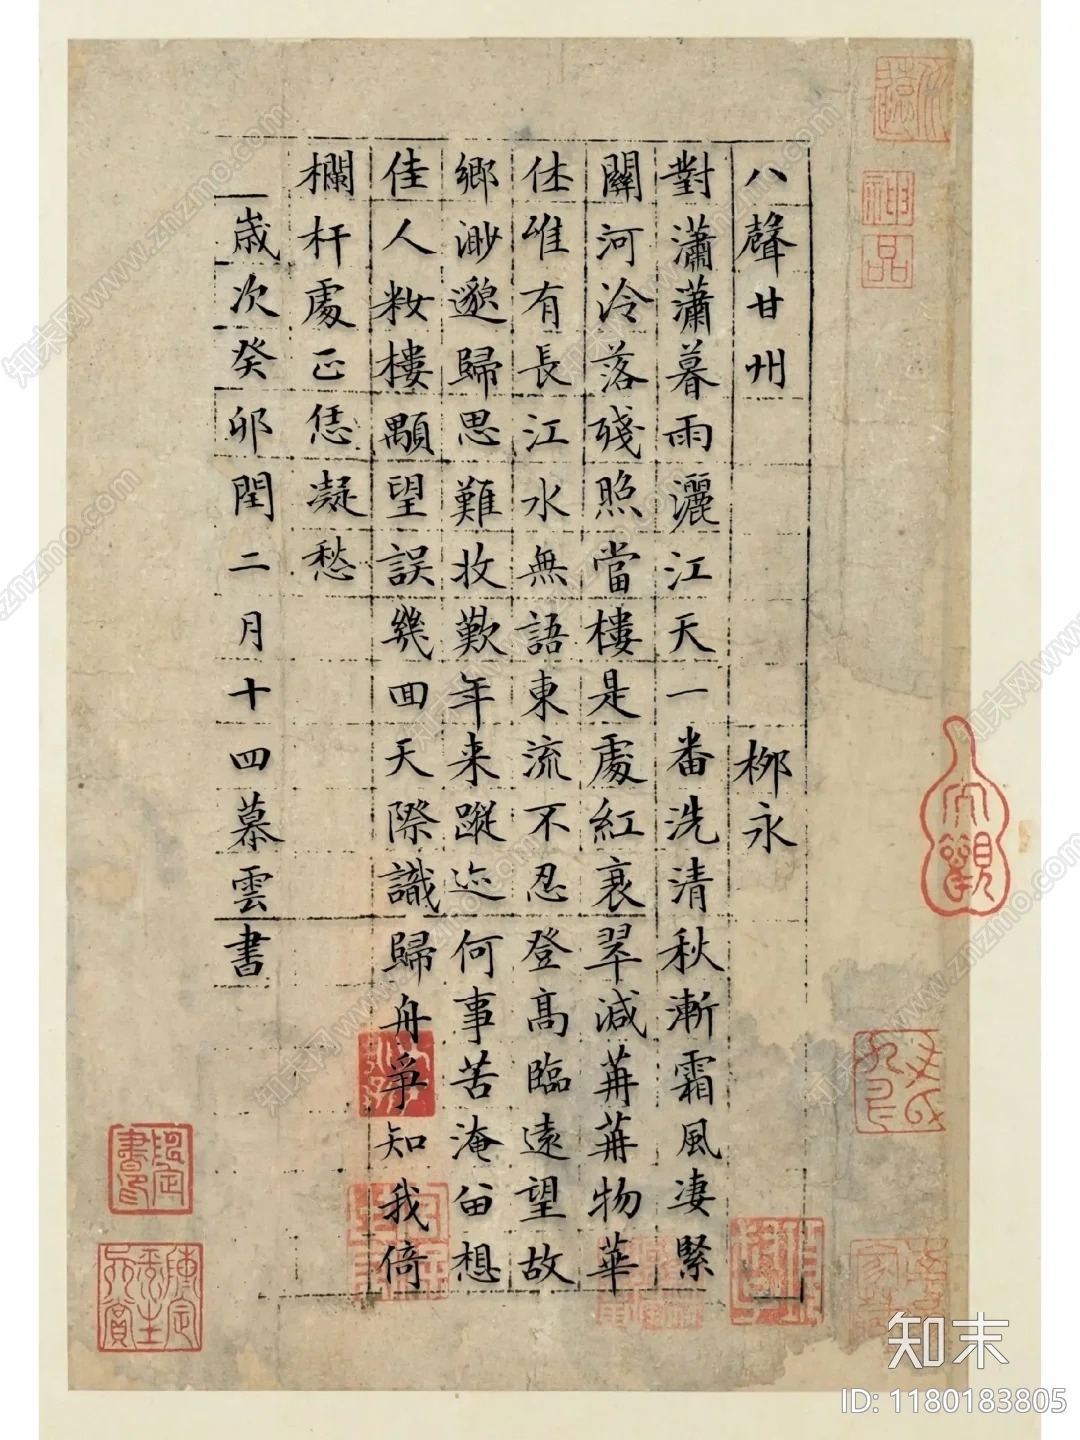 八聲甘州 柳永
對瀟瀟暮雨灑江天一番洗清秋漸霜風凄緊
關河冷落殘照當樓是處紅衰翠減苒苒物華
休惟有長江水無語東流不忍登高臨遠望故
鄉渺邈歸思難收歎年来蹤迹何事苦淹留想
佳人妝樓顒望誤幾回天際識歸舟爭知我倚
欄杆處正恁凝愁
歲次癸卯閏二月十四慕雲書
神品
大觀
知末
ID: 1180183805
知末网www.znzmo.com